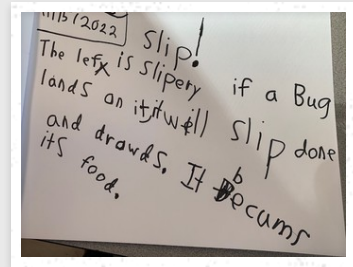 11/15/2022
Slip!
The lefx is slipery if a Bug
lands on it, it will slip done
and drowds. It becums
its food.